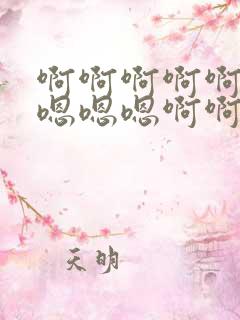 啊啊啊啊啊
嗯嗯嗯啊啊
天明